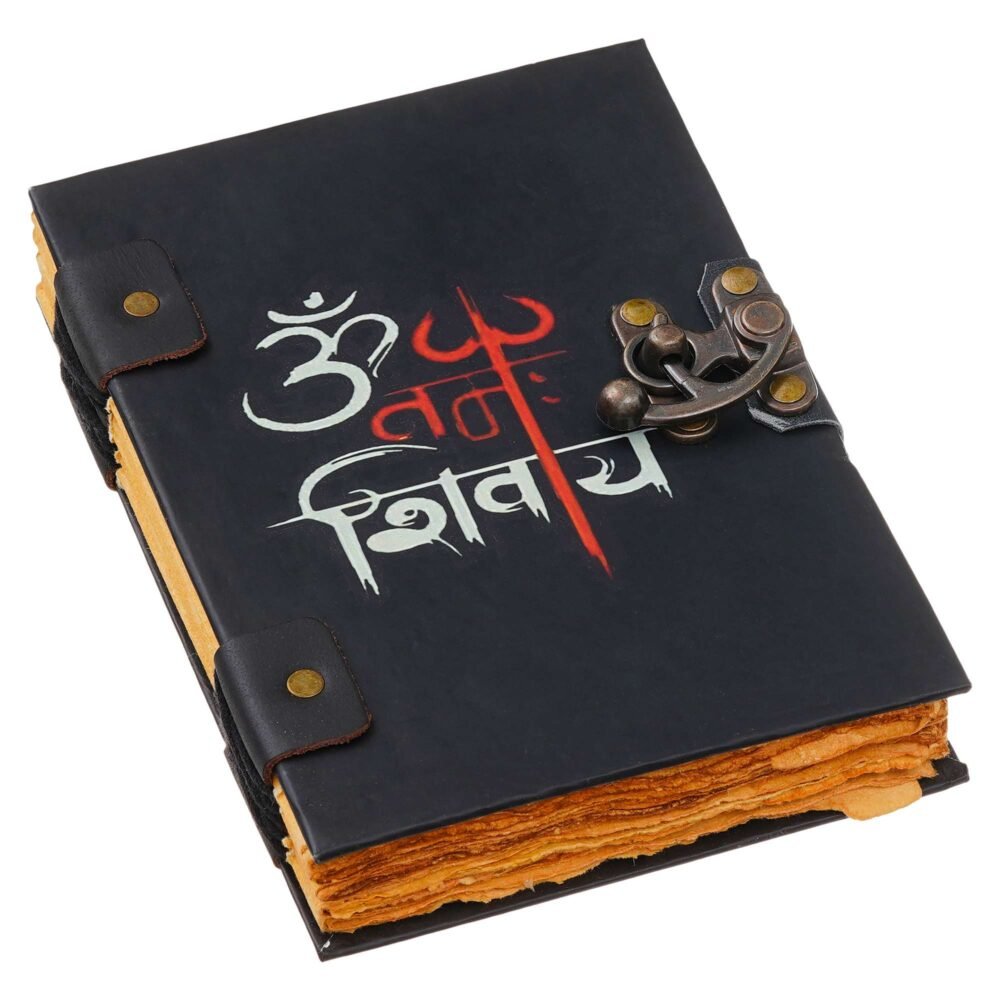 ॐ
नमः
शिवाय